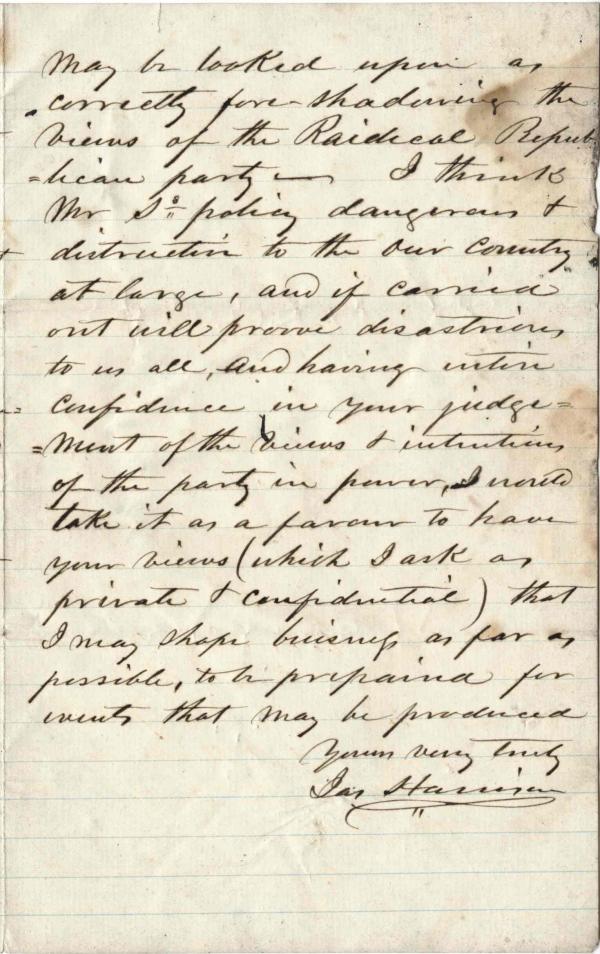 may be looked upon as
correctly fore-shadowing the
views of the Raidecal Repub-
=lican party— I think
Mr S's policy dangerous &
distructive to the our Country
at large, and if carried
out will proove disastrious
to us all, and having entire
confidence in your judge=
=ment of the views & intentions
of the party in power, I would
take it as a favour to have
your views (which I ask as
private & confidential) that
I may shape buisness as far as
possible, to be prepaired for
events that may be produced
Yours very truly
Jas Harrison